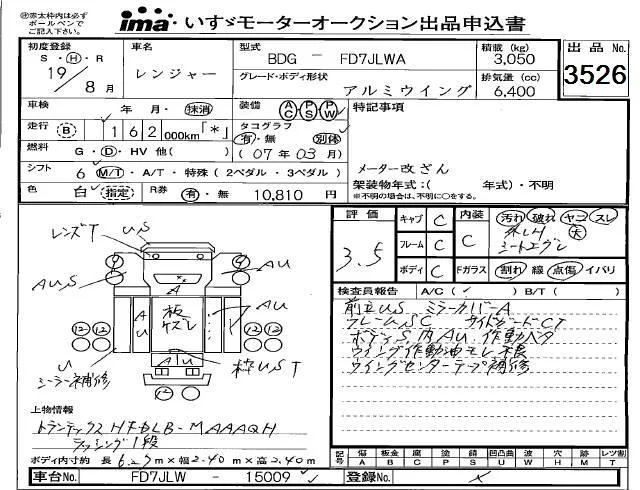 ㊟赤太枠内は必ず
ボールペンで
ご記入下さい。
ima いすゞモーターオークション出品申込書
初度登録
S・H・R
19
8月
車名
レンジャー
型式
BDG - FD7JLWA
グレード・ボディ形状
アルミウイング
積載 (kg)
3,050
排気量 (cc)
6,400
出品No.
3526
車検
年・月・抹消
装備
AC PS PW
走行 B
162000km「*」
タコグラフ
有・無 別体
(07年03月)
燃料
G・D・HV 他( )
シフト
6 M/T・A/T・特殊(2ペダル・3ペダル)
色
白 指定
R券
有・無 10,810円
特記事項
メーター改ざん
架装物年式:( 年式)・不明
※不明の場合は、不明に○をする。
評価
3.5
キャブ C
フレーム C
ボディ C
内装
C
Fガラス
汚れ 破れ ヤニ スレ
大
シートエグレ
割れ 線 点傷 イバリ
検査員報告
A/C( ✓ ) B/T( )
前立US ミラーカバーA
フレームSC サイドガードCT
ボディS 内AU 作動ハタ
ウイング作動油モレ不良
ウイングセンターテープ補修
レンズT US
AUS
AU
A
AU
板
ケズレ
AU
12
12
U
シーラー補修
AU
枠UST
12
上物情報
トランテックスHFDLB-MAAAQH
ラッシング1段
ボディ内寸約 長6.27m×幅2.40m×高2.40m
記号
傷 A
板金 B
腐 C
塗 P
錆 S
凹凸凸 U
波 W
穴 H
跡 M
レツ割 T
車台No. FD7JLW - 15009
識別No. ×